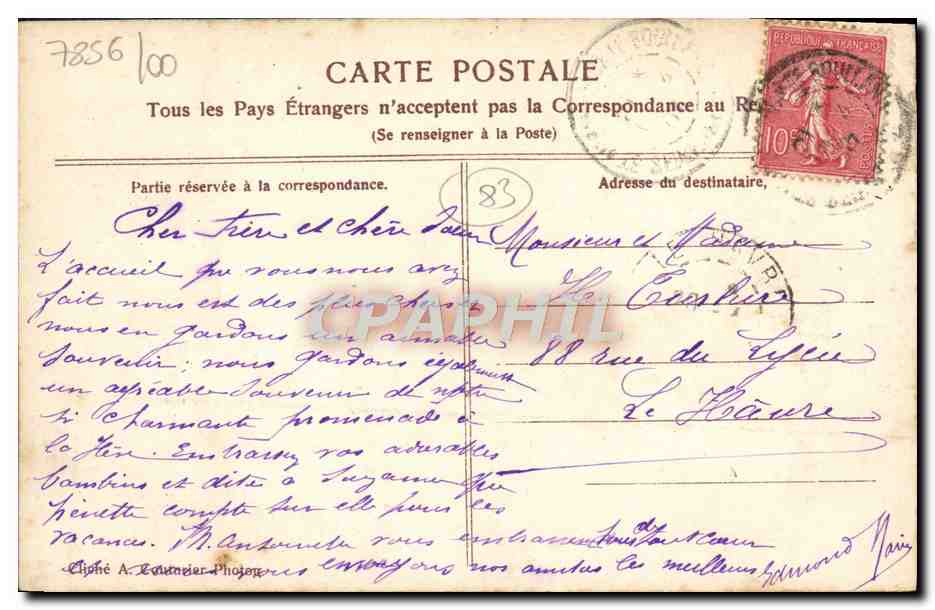 7856/00
CARTE POSTALE
Tous les Pays Étrangers n'acceptent pas la Correspondance au
(Se renseigner à la Poste)
REPUBLIQUE FRANÇAISE
10
Partie réservée à la correspondance.
83
Adresse du destinataire,
Cher Frère et chère Sœur
L'accueil que vous nous avez
fait nous est des plus chers et
nous en gardons un aimable
souvenir; nous gardons également
un agréable souvenir de notre
si charmante promenade à
la Hève. Embrassez vos adorables
bambins et dites à Suzanne que
pierette compte sur elle pour les
vacances. M. Antoinette vous embrassent tous de tout cœur
vous envoyons nos amitiés les meilleures
Edmond
Monsieur et Madame
88 rue du Lycée
Le Hâvre
CPAPHIL
Cliché A. Couturier Photog